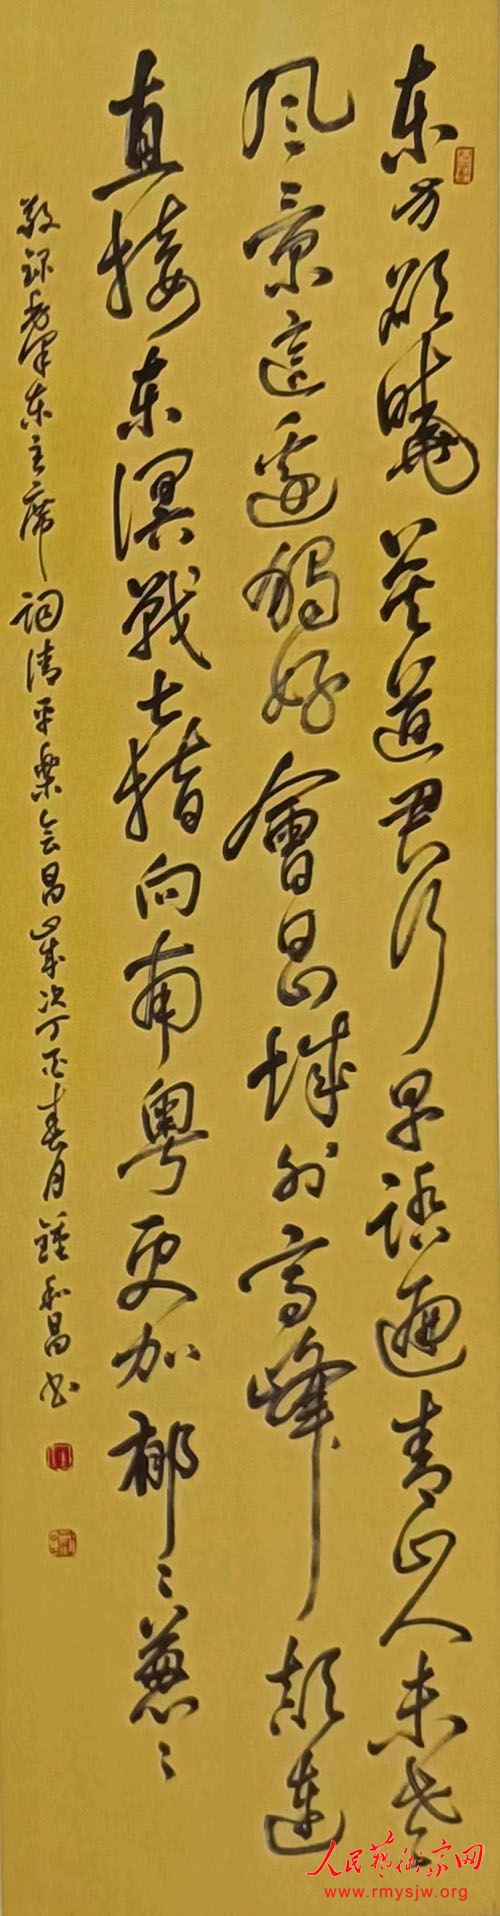 东方欲曉莫道君行早踏遍青山人未老
风景這邊獨好會昌城外高峰颠連
直接东溟戰士指向南粤更加郁〻葱〻
敬録毛泽东主席词清平樂会昌歲次丁酉春月鍾和昌书
人民艺术家网
www.rmysjw.org